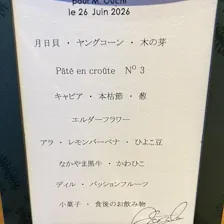 pour M. Ouchi
le 26 Juin 2026
月日貝 ・ ヤングコーン ・ 木の芽
Pâté en croûte N° 3
キャビア ・ 本枯節 ・ 葱
エルダーフラワー
アラ ・ レモンバーベナ ・ ひよこ豆
なかやま黒牛 ・ かわひこ
ディル ・ パッションフルーツ
小菓子 ・ 食後のお飲み物